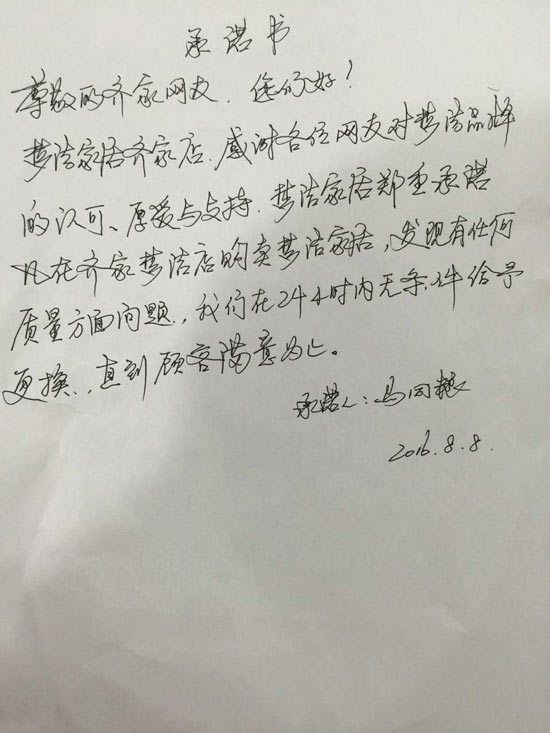 承诺书
尊敬的齐家网友、您们好！
梦洁家居齐家店.感谢各位网友对梦洁品牌
的认可、厚爱与支持.梦洁家居郑重承诺
凡在齐家梦洁店购卖梦洁家居,发现有任何
质量方面问题,我们在24小时内无条件给予
更换,直到顾客满意为止。
承诺人:马同粮
2016.8.8.